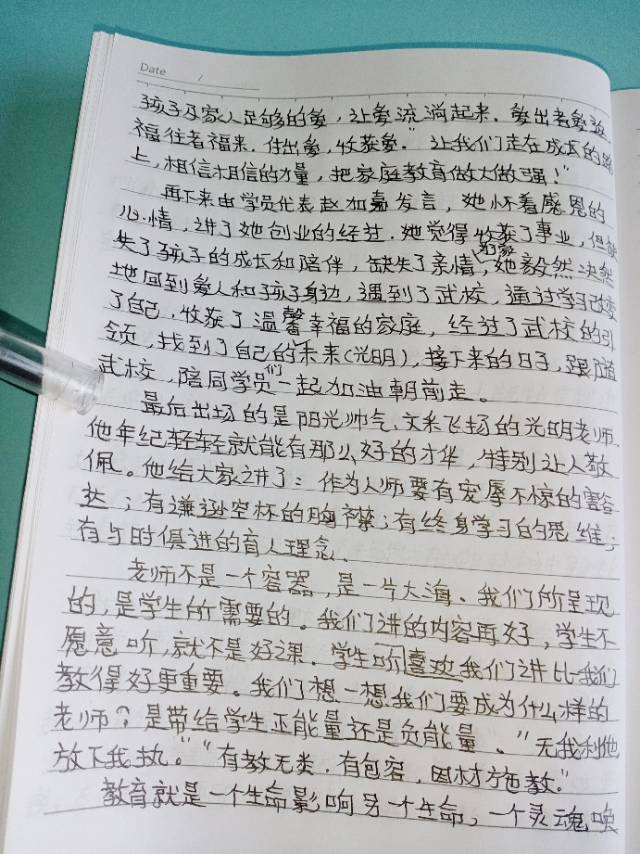 Date /
孩子及家人足够的爱，让爱流淌起来。爱出者爱返
福往者福来。付出爱，收获爱。"让我们走在成长的路
上，相信相信的力量，把家庭教育做大做强！"
再下来由学员代表赵加嘉发言，她怀着感恩的
心情，讲了她创业的经过。她觉得收获了事业，但
失了孩子的成长和陪伴，缺失了亲情，她毅然决然
地回到爱人和孩子身边，遇到了武校，通过学习改变
了自己，收获了温馨幸福的家庭，经过了武校的引
领，找到了自己的未来(光明)，接下来的日子，跟随
武校，陪同学员们一起加油朝前走。
最后出场的是阳光帅气、文采飞扬的光明老师，
他年纪轻轻就能有那么好的才华，特别让人敬
佩。他给大家讲了：作为人师要有宠辱不惊的豁
达；有谦逊空杯的胸襟；有终身学习的思维；
有与时俱进的育人理念。
老师不是一个容器，是一片大海、我们所呈现
的，是学生所需要的。我们讲的内容再好，学生不
愿意听，就不是好课。学生听喜欢我们讲比我们
教得好更重要。我们想一想我们要成为什么样的
老师？是带给学生正能量还是负能量。"无我利他
放下我执。""有教无类，有包容，因材施教。"
教育就是一个生命影响另一个生命，一个灵魂唤